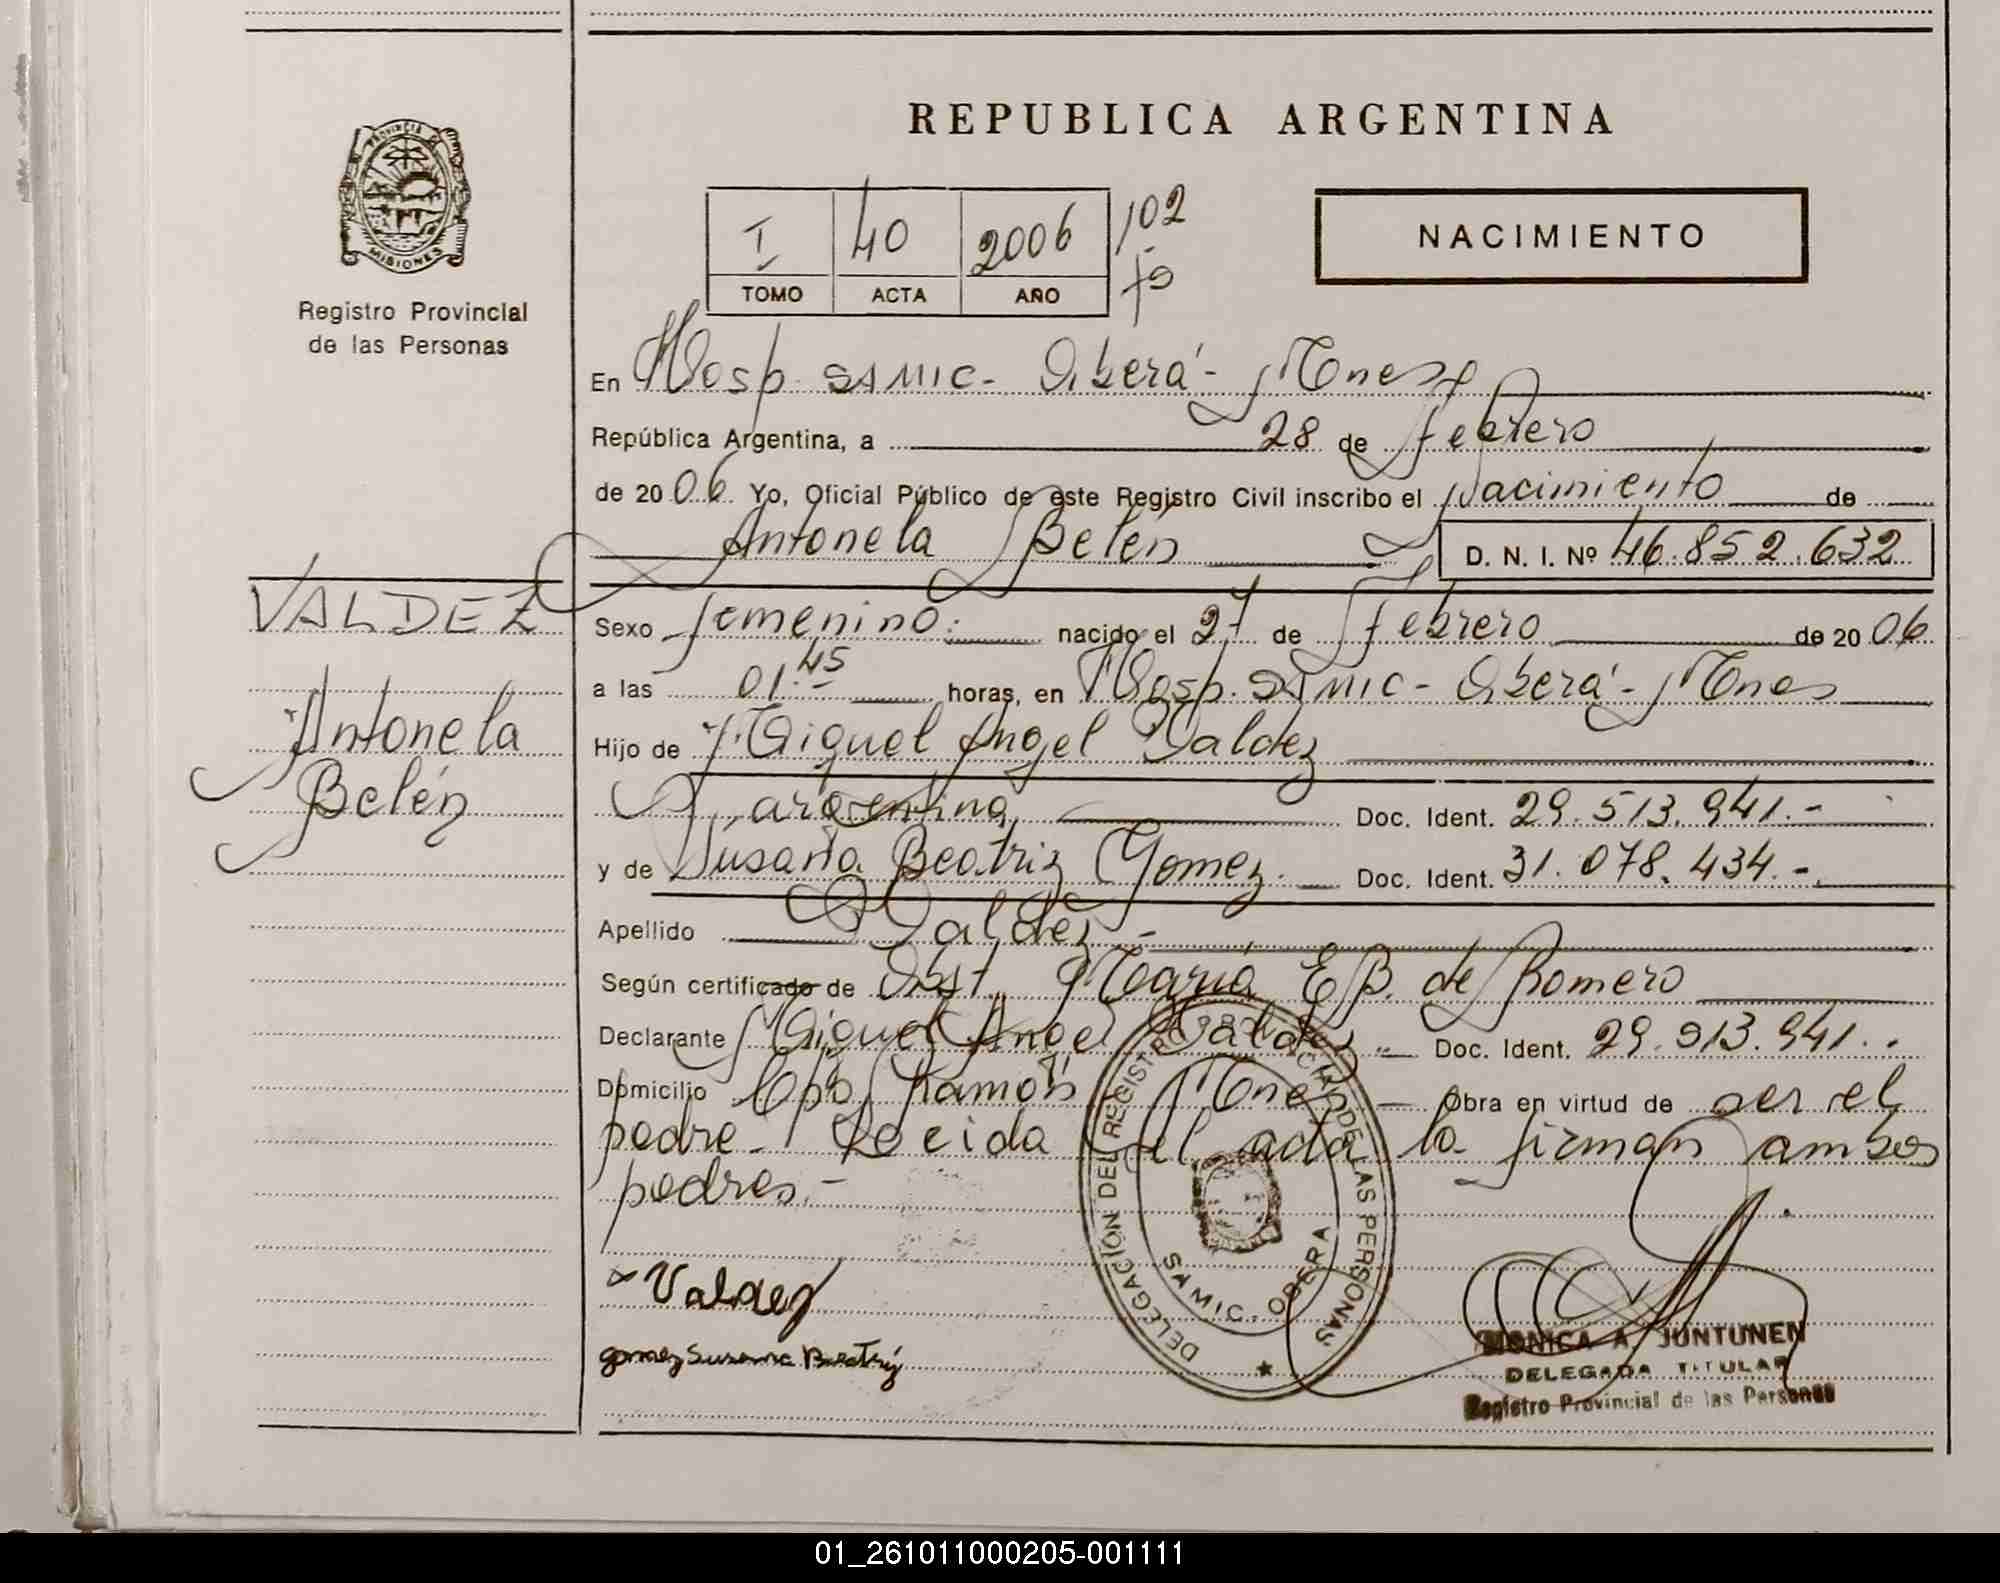 REPUBLICA ARGENTINA
PROVINCIA DE MISIONES
Registro Provincial
de las Personas
I 40 2006 102
TOMO ACTA AÑO fº
NACIMIENTO
En Hosp. SAMIC - Oberá - Mnes
República Argentina, a 28 de febrero
de 2006 Yo, Oficial Público de este Registro Civil inscribo el Nacimiento de
Antonela Belén D. N. I. Nº 46.852.632
VALDEZ
Antonela
Belén
Sexo femenino: nacido el 27 de Febrero de 2006
a las 01.45 horas, en Hosp. SAMIC - Oberá - Mnes
Hijo de Miguel Angel Valdez
argentina Doc. Ident. 29.513.941.-
y de Susana Beatriz Gomez. Doc. Ident. 31.078.434.-
Apellido Valdez.-
Según certificado de Obst. María E B. de Romero
Declarante Miguel Angel Valdez.- Doc. Ident. 29.513.941.-
Domicilio Cpo. Ramón Mnes Obra en virtud de ser el
padre - Leeida el acta la firman ambos
padres.-
Valdez
gomez Susana Beatriz
DELEGACIÓN DEL REGISTRO PROVINCIAL DE LAS PERSONAS
SAMIC - OBERA
MONICA A. JUNTUNEN
DELEGADA TITULAR
Registro Provincial de las Personas
01_261011000205-001111